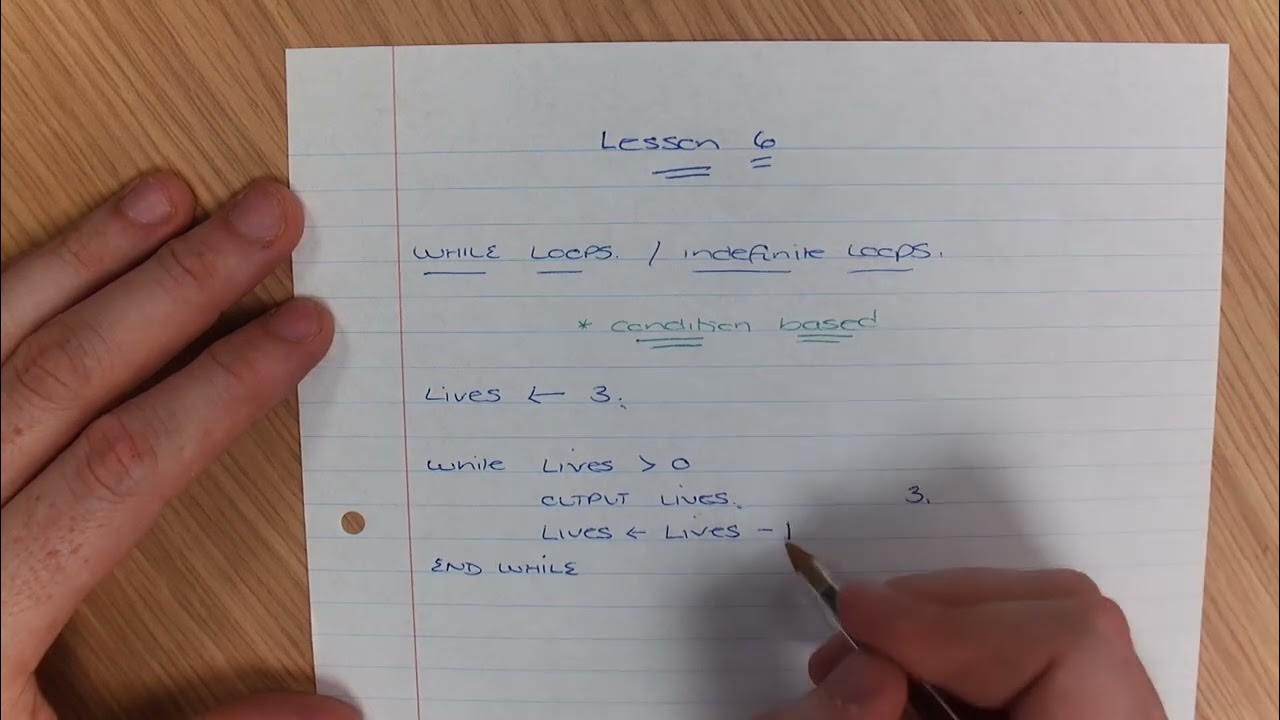 Lesson 6
WHILE LOOPS. / indefinite LOOPS.
* condition based
Lives ← 3.
while Lives > 0
OUTPUT LIVES. 3.
Lives ← Lives - 1
END WHILE